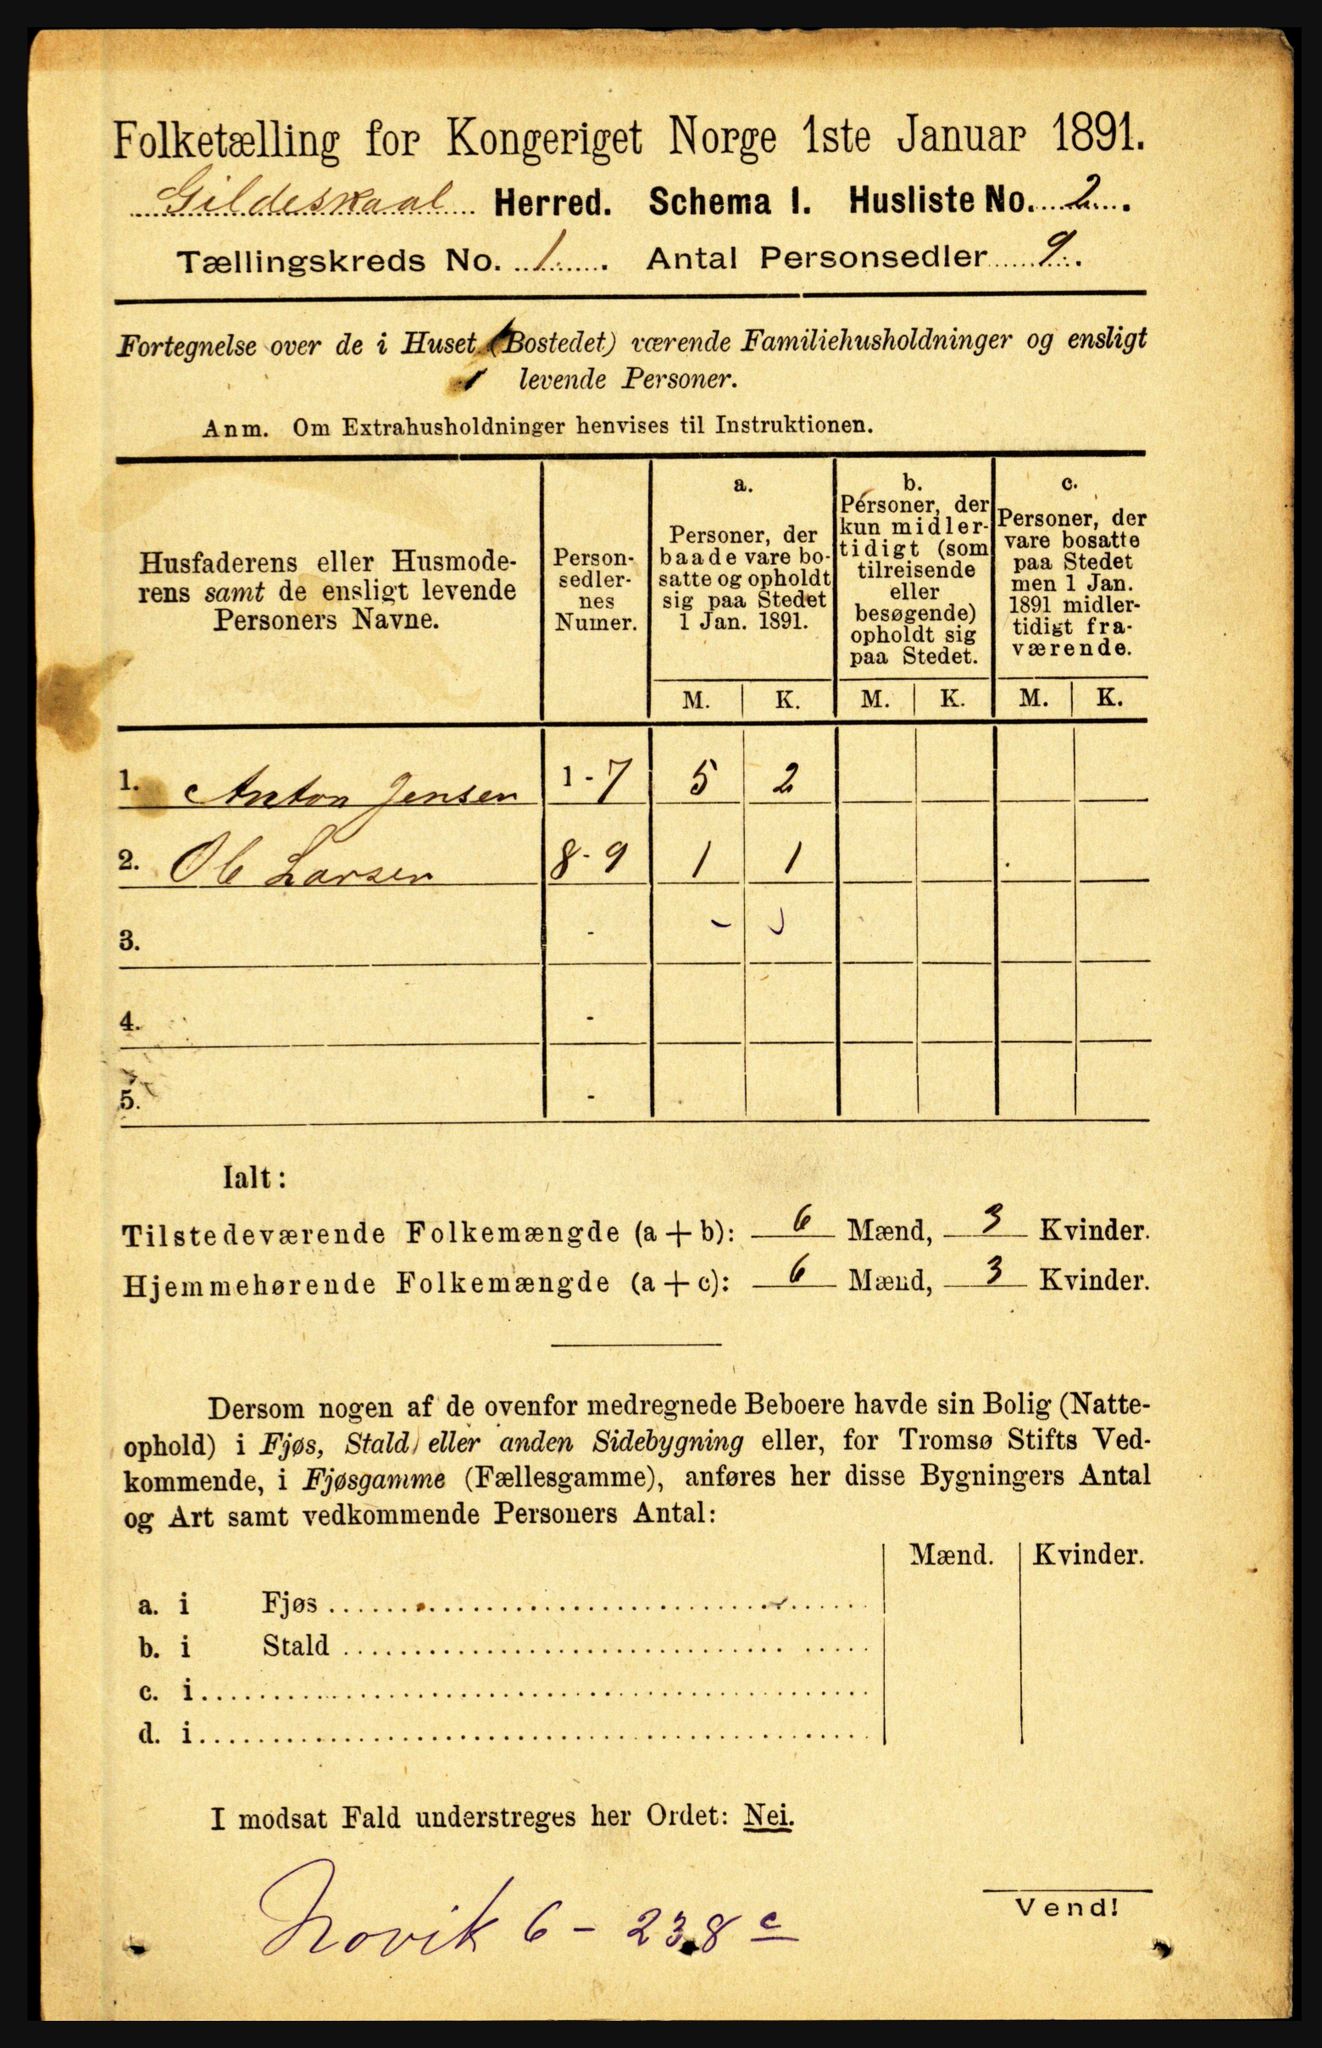 Folketælling for Kongeriget Norge 1ste Januar 1891.
Gildeskaal Herred. Schema I. Husliste No. 2.
Tællingskreds No. 1. Antal Personsedler 9.
Fortegnelse over de i Huset (Bostedet) værende Familiehusholdninger og ensligt
levende Personer.
Anm. Om Extrahusholdninger henvises til Instruktionen.
Husfaderens eller Husmode-
rens samt de ensligt levende
Personers Navne.
Person-
sedler-
nes
Numer.
a.
Personer, der
baade vare bo-
satte og opholdt
sig paa Stedet
1 Jan. 1891.
b.
Personer, der
kun midler-
tidigt (som
tilreisende
eller
besøgende)
opholdt sig
paa Stedet.
c.
Personer, der
vare bosatte
paa Stedet
men 1 Jan.
1891 midler-
tidigt fra-
værende.
M. K. M. K. M. K.
1. Anton Jensen 1-7 5 2
2. Ole Larsen 8-9 1 1
3. -
4. -
5. -
Ialt:
Tilstedeværende Folkemængde (a + b): 6 Mænd, 3 Kvinder.
Hjemmehørende Folkemængde (a + c): 6 Mænd, 3 Kvinder.
Dersom nogen af de ovenfor medregnede Beboere havde sin Bolig (Natte-
ophold) i Fjøs, Stald eller anden Sidebygning eller, for Tromsø Stifts Ved-
kommende, i Fjøsgamme (Fællesgamme), anføres her disse Bygningers Antal
og Art samt vedkommende Personers Antal:
Mænd. Kvinder.
a. i Fjøs
b. i Stald
c. i
d. i
I modsat Fald understreges her Ordet: Nei.
Novik 6 - 238 c
Vend!